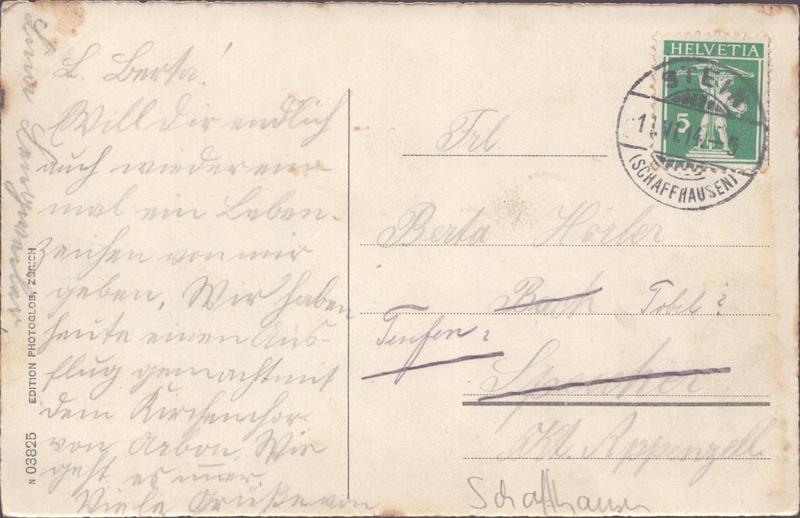 L. Berta!
Will dir endlich
auch wieder ein
mal ein Leben-
zeichen von mir
geben. Wir haben
heute einen Aus-
flug gemacht mit
dem Kirchenchor
von Arbon. Wie
geht es immer
Viele Grüße von
HELVETIA
5
STEIN
(SCHAFFHAUSEN)
Frl.
Berta Horler
Bach Tobel?
Teufen?
Speicher
Kt. Appenzell
Schaffhausen
N 03825 EDITION PHOTOGLOB, ZÜRICH